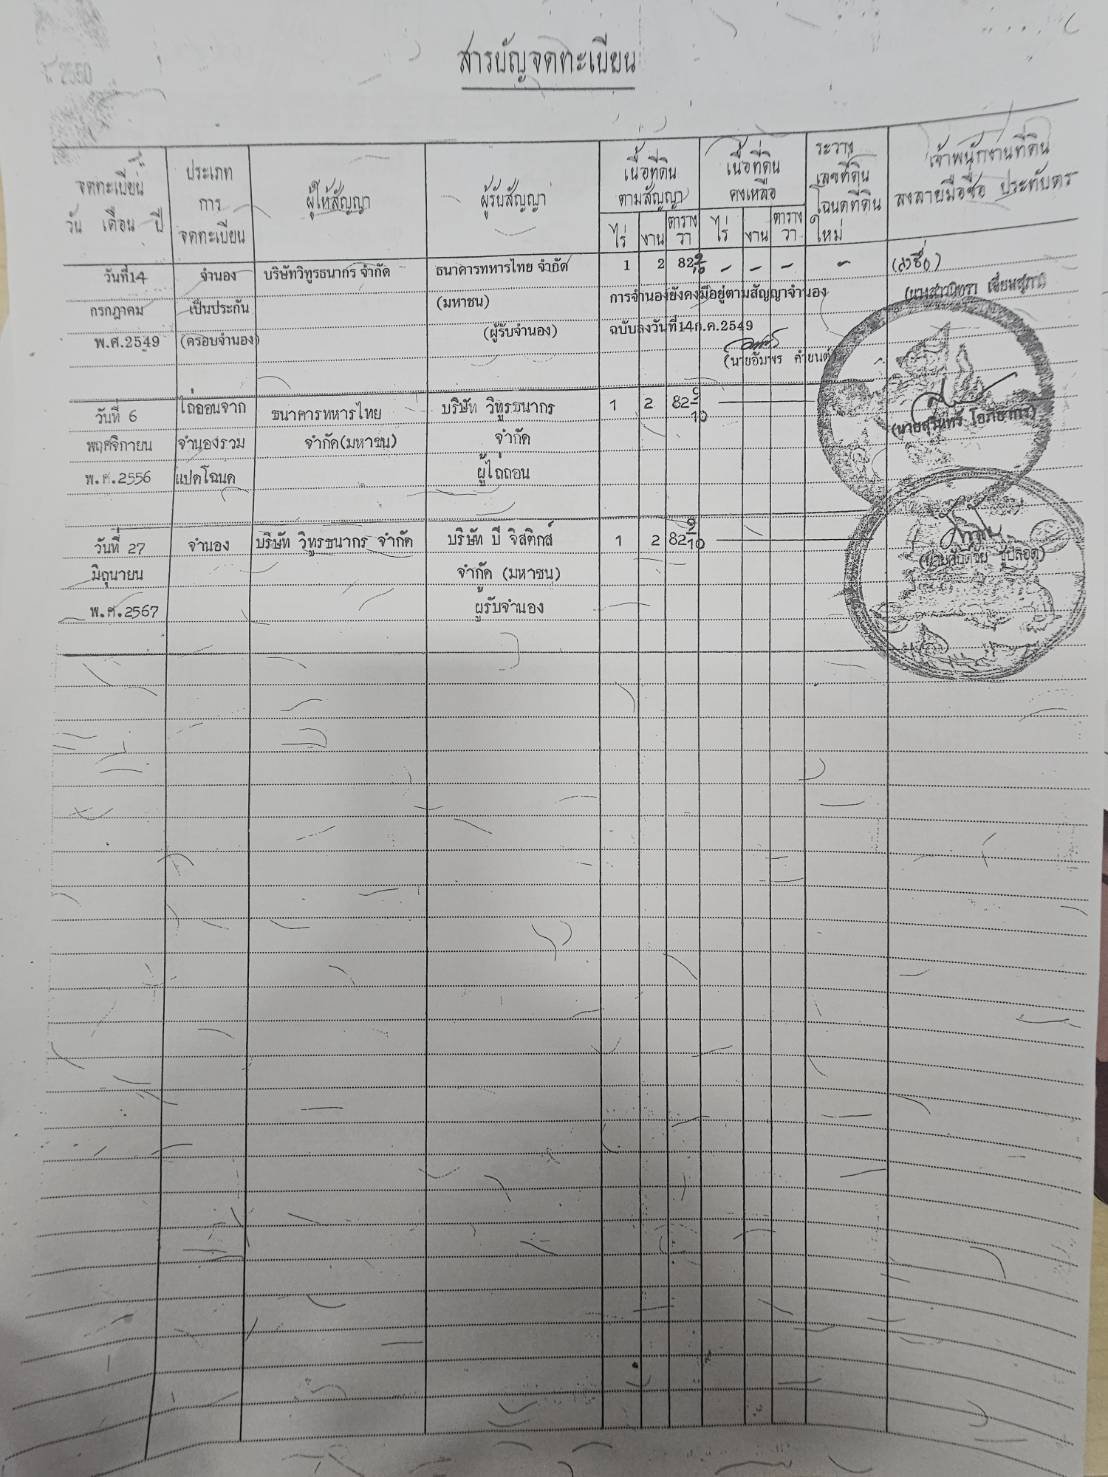 2550
สารบัญจดทะเบียน
จดทะเบียน
วัน เดือน ปี
ประเภท
การ
จดทะเบียน
ผู้ให้สัญญา
ผู้รับสัญญา
เนื้อที่ดิน
ตามสัญญา
ไร่ งาน ตาราง
วา
เนื้อที่ดิน
คงเหลือ
ไร่ งาน ตาราง
วา
ระวาง
เลขที่ดิน
โฉนดที่ดิน
ใหม่
เจ้าพนักงานที่ดิน
ลงลายมือชื่อ ประทับตรา
วันที่14 จำนอง บริษัทวิทูรธนากร จำกัด ธนาคารทหารไทย จำกัด 1 2 82 9/10 - - - - (ลงชื่อ)
กรกฎาคม เป็นประกัน (มหาชน) การจำนองยังคงมีอยู่ตามสัญญาจำนอง
พ.ศ.2549 (ครอบจำนอง) (ผู้รับจำนอง) ฉบับลงวันที่14ก.ค.2549
วันที่ 6 ไถ่ถอนจาก ธนาคารทหารไทย บริษัท วิทูรธนากร 1 2 82 9/10
พฤศจิกายน จำนองรวม จำกัด(มหาชน) จำกัด
พ.ศ.2556 แปดโฉนด ผู้ไถ่ถอน
วันที่ 27 จำนอง บริษัท วิทูรธนากร จำกัด บริษัท บี จิสติกส์ 1 2 82 9/10
มิถุนายน จำกัด (มหาชน)
พ.ศ.2567 ผู้รับจำนอง